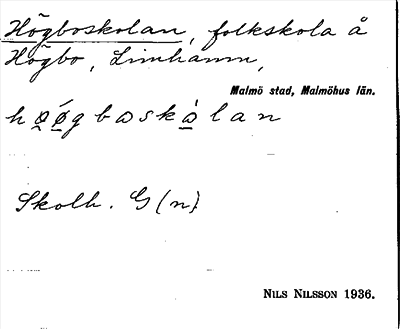 Högboskolan, folkskola å
Högbo, Limhamn,
Malmö stad, Malmöhus län.
hø̰ǿ̰gbɷskɷ̰̀lan
Skolh. G (n).
NILS NILSSON 1936.